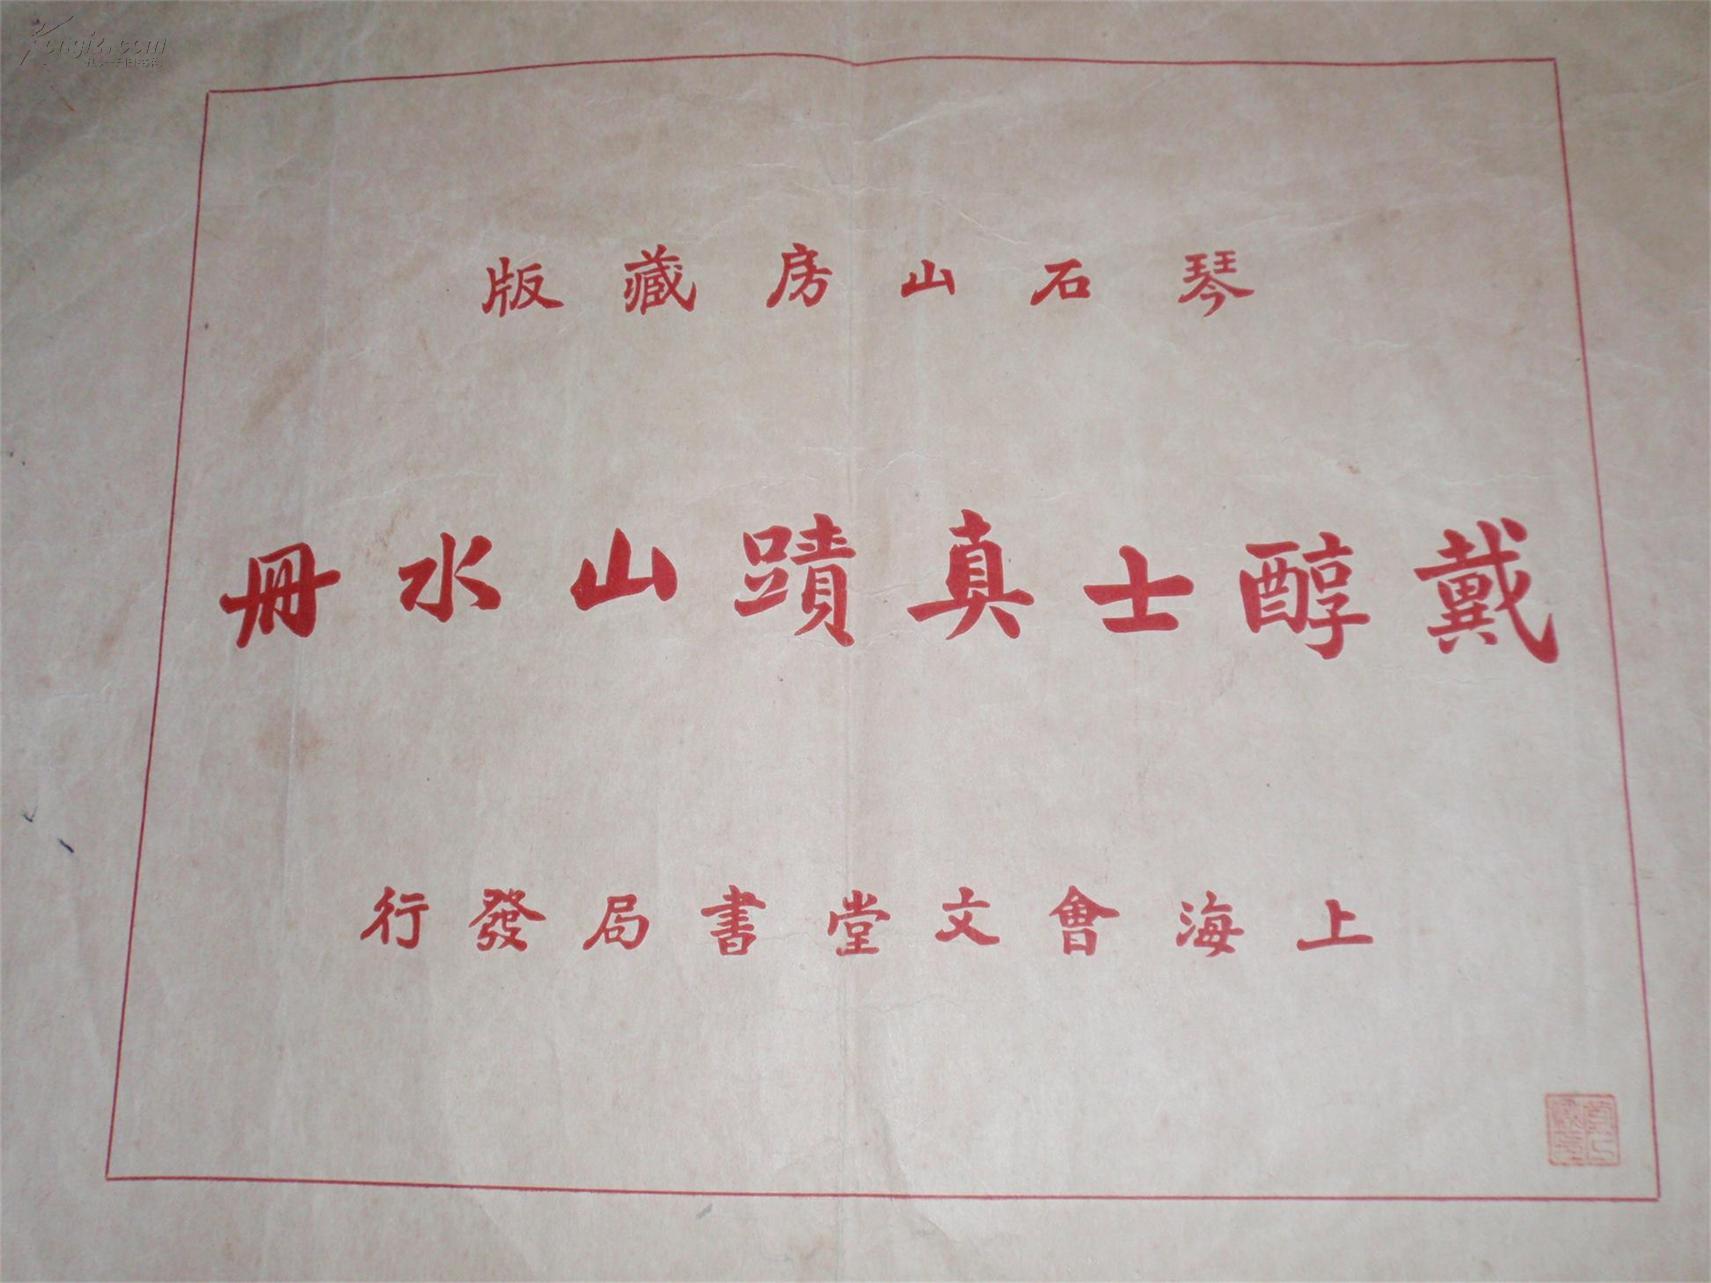 琴石山房藏版
戴醇士真蹟山水冊
上海會文堂書局發行